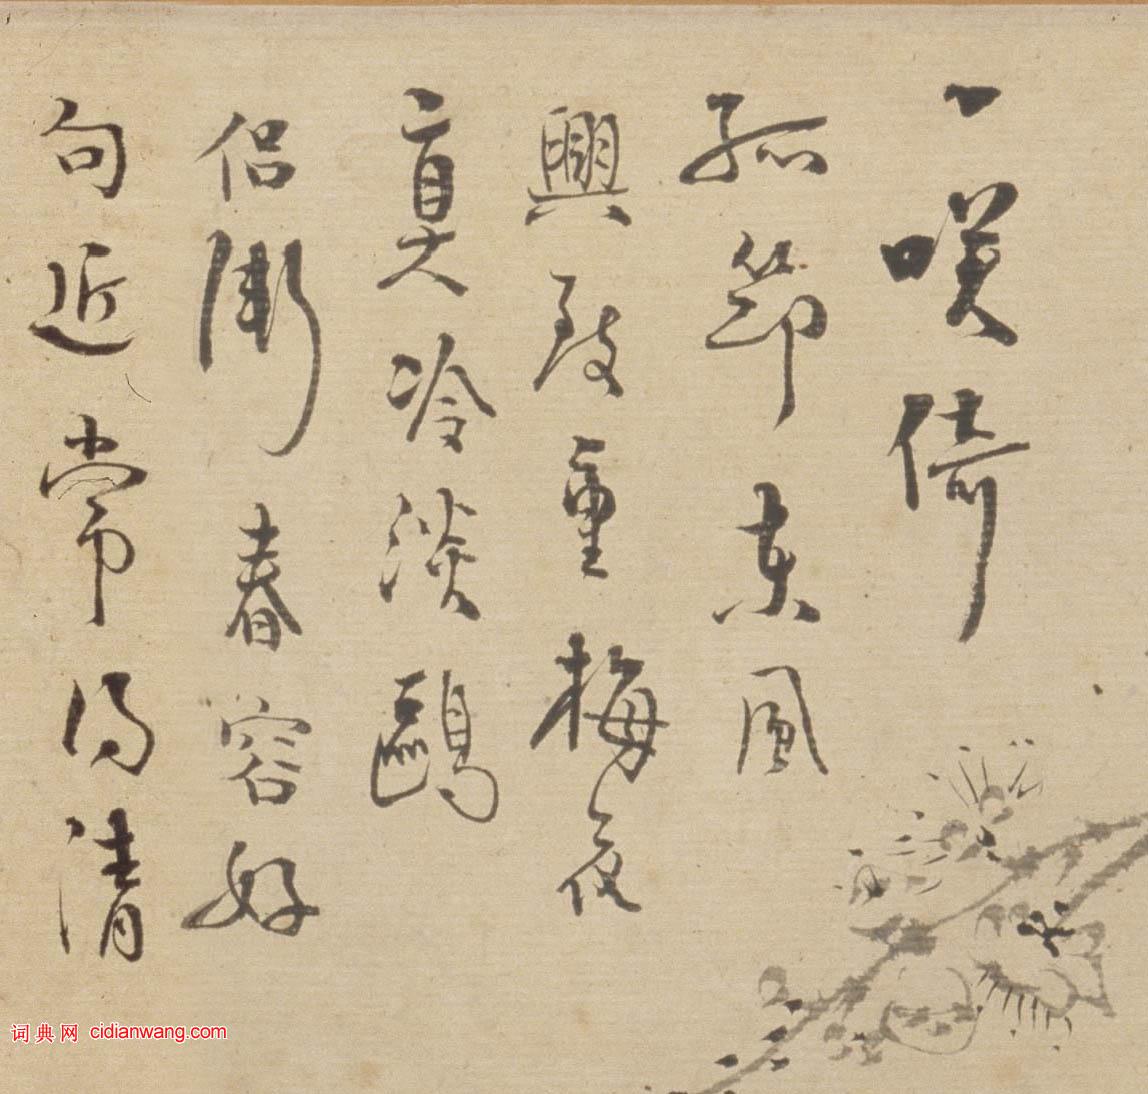 一咲倚
孤筇東風
興致重梅夜
冷淡鷗
侣漸春容好
句近常得清
词典网 cidianwang.com